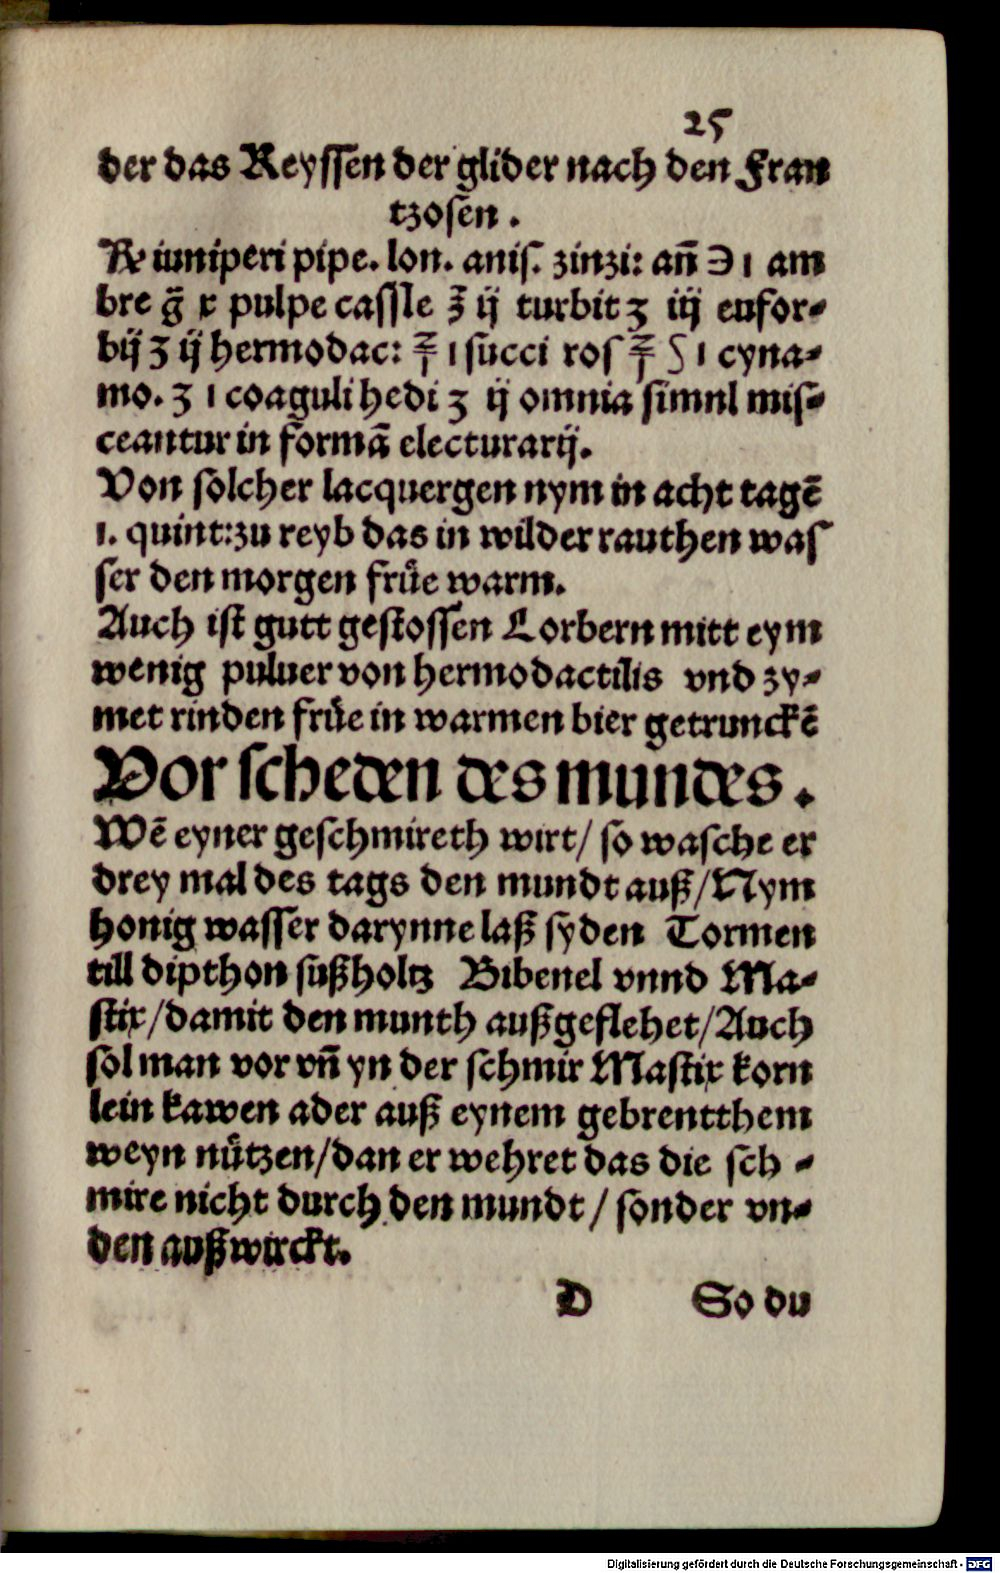 25
der das Reyssen der glider nach den Fran
tzosen .
℞ iuniperi pipe. lon. anis. zinzi: an̄ ℈ ı am
bre g̃ x pulpe cassie ℥ ij turbit ʒ iij eufor-
bij ʒ ij hermodac: ℥ ı succi ros ℥ ʃ ı cyna-
mo. ʒ ı coaguli hedi ʒ ij omnia simul mis-
ceantur in formã electurarij.
Von solcher lacquergen nym in acht tagẽ
1. quint:zu reyb das in wilder rauthen was
ser den morgen frůe warm.
Auch ist gutt gestossen Lorbern mitt eym
wenig puluer von hermodactilis vnd zy-
met rinden frůe in warmen bier getrunckẽ
Vor scheden des mundes.
Wẽ eyner geschmireth wirt/ so wasche er
drey mal des tags den mundt auß/Nym
honig wasser darynne laß syden Tormen
till dipthon sußholtz Bibenel vnnd Ma-
stix/damit den munth außgeflehet/Auch
sol man vor vn̄ yn der schmir Mastix korn
lein kawen ader auß eynem gebrentthem
weyn nůtzen/dan er wehret das die sch -
mire nicht durch den mundt / sonder vn-
den außwirckt.
D So du
Digitalisierung gefördert durch die Deutsche Forschungsgemeinschaft - DFG